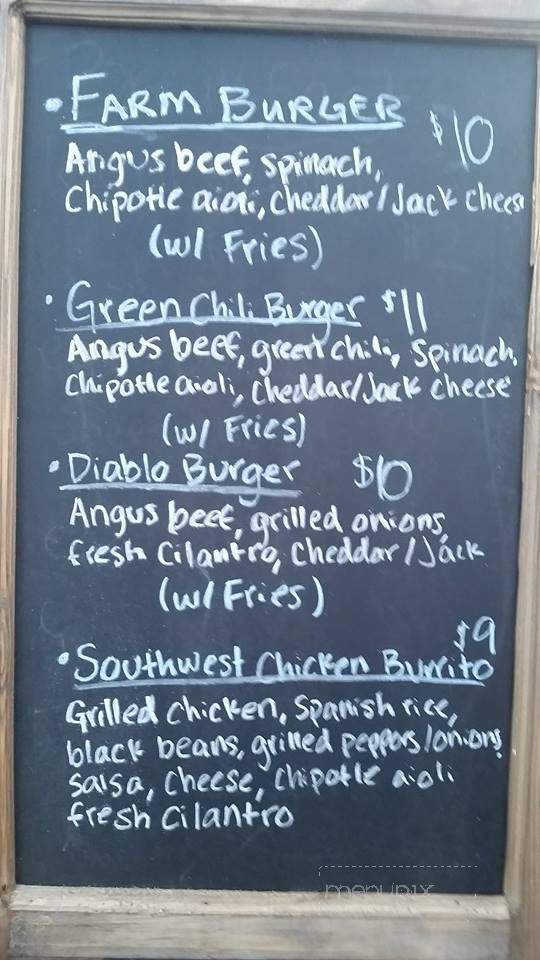 • FARM BURGER $10
Angus beef, spinach,
Chipotle aioli, cheddar/Jack cheese
(w/ Fries)
• Green Chili Burger $11
Angus beef, green chili, Spinach,
Chipotle aioli, Cheddar/Jack cheese
(w/ Fries)
• Diablo Burger $10
Angus beef, grilled onions,
fresh Cilantro, Cheddar/Jack
(w/ Fries)
$9
• Southwest Chicken Burrito
Grilled chicken, Spanish rice,
black beans, grilled peppers/onions
Salsa, Cheese, Chipotle aioli
fresh Cilantro
menupix